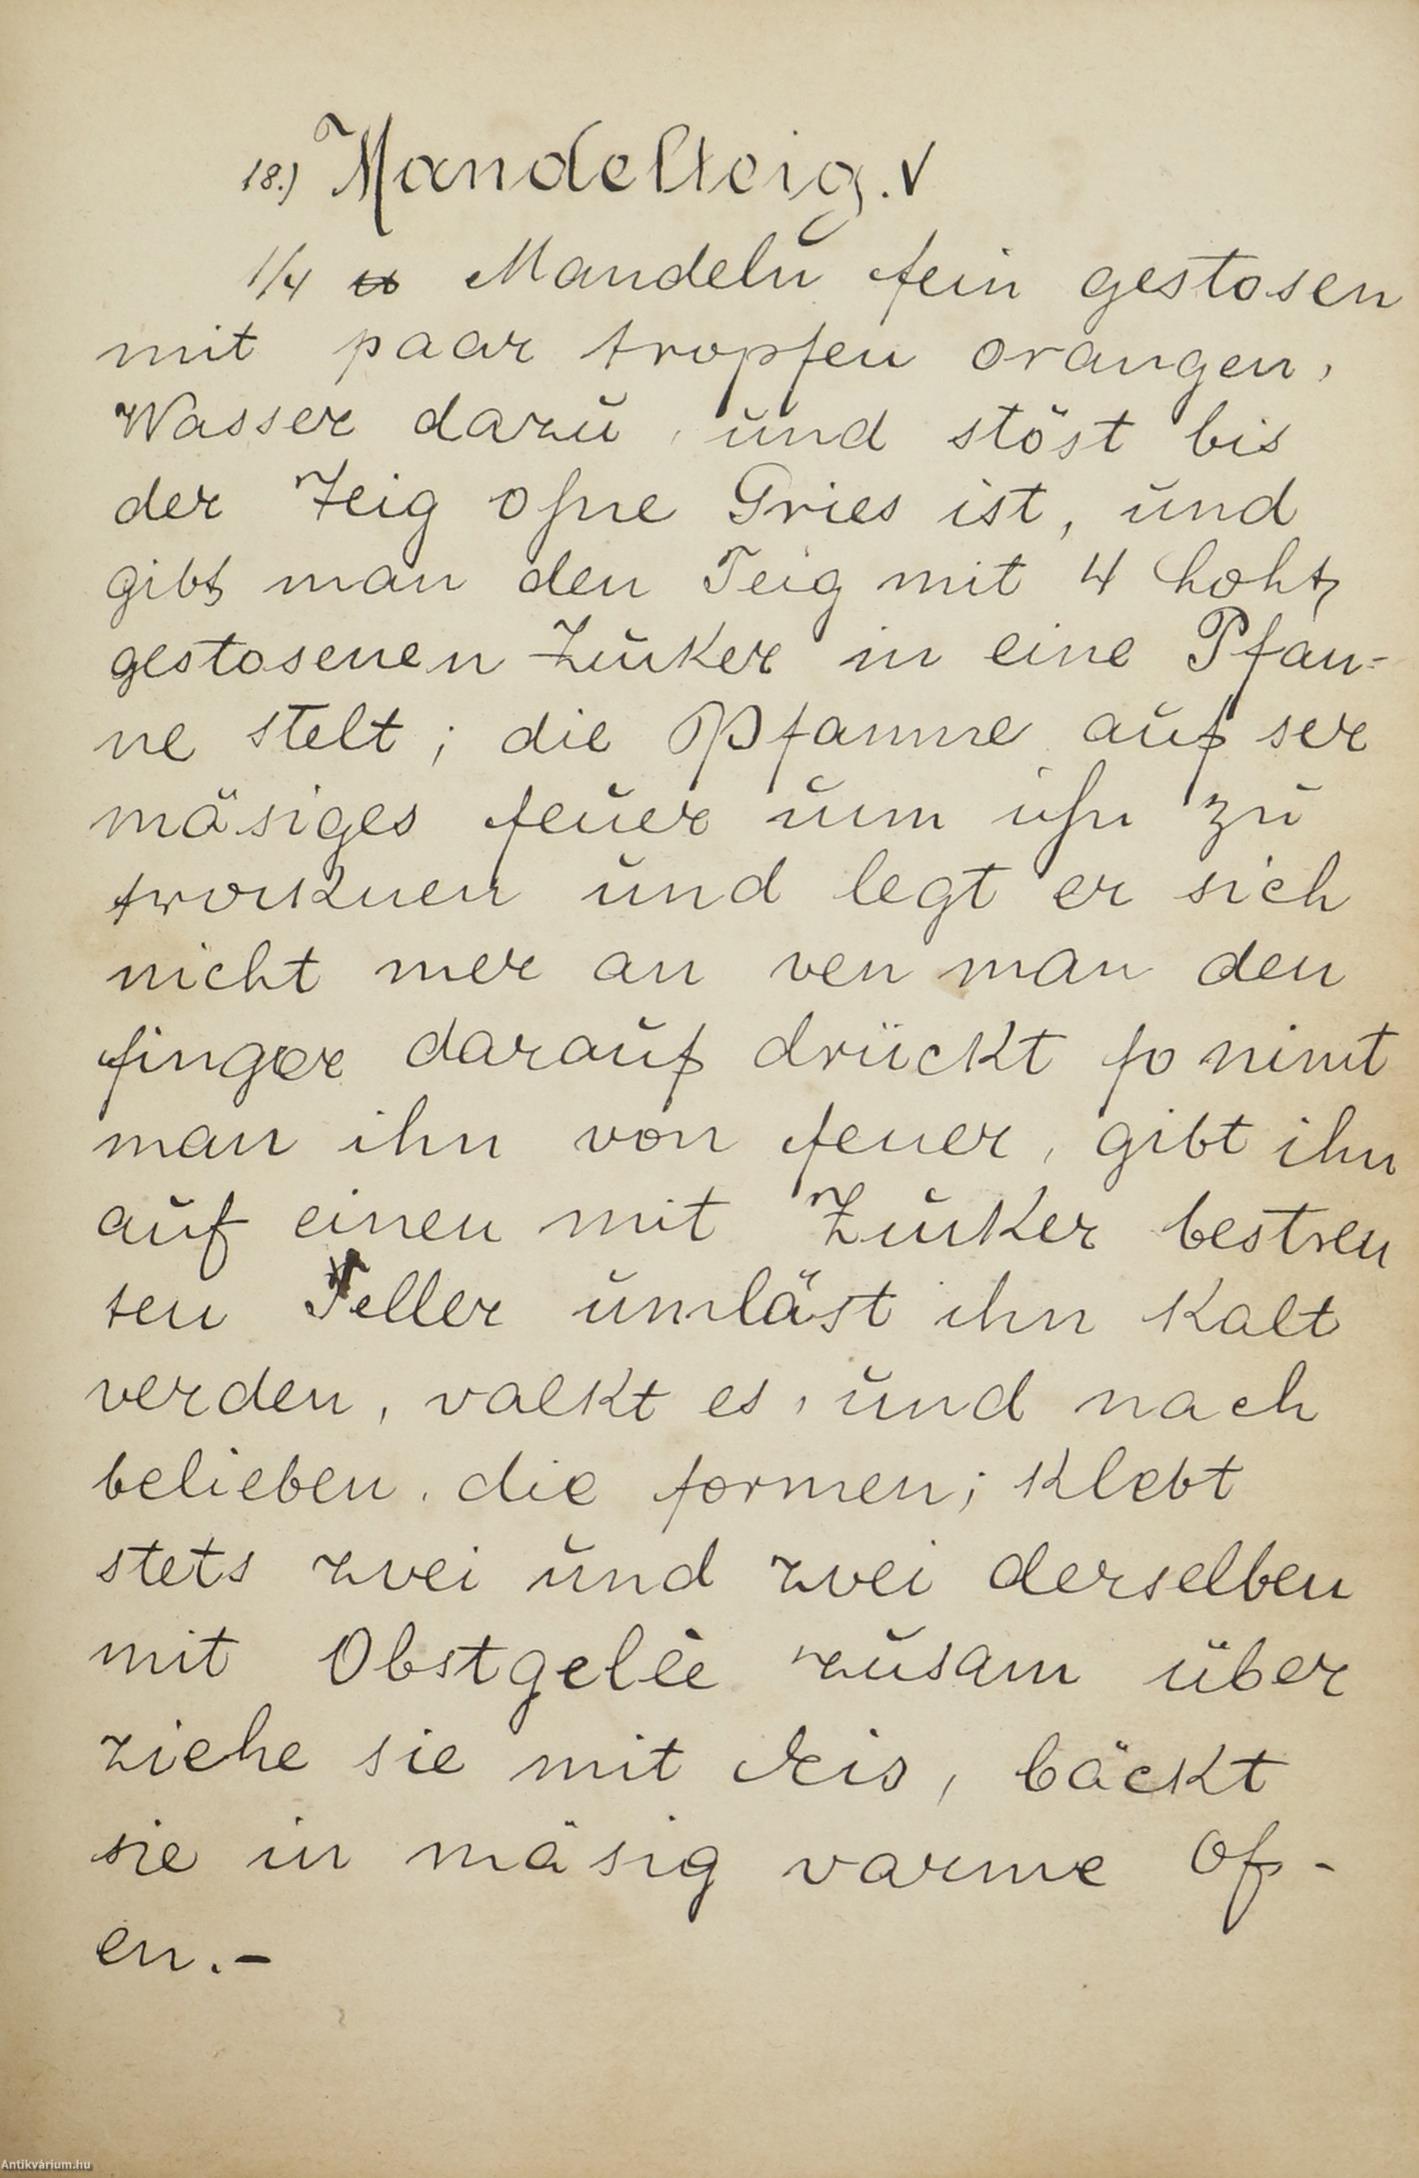 18.) Mandelteig. V
1/4 ℔ Mandeln fein gestosen
mit paar tropfen orangen,
Wasser dazu, und stöst bis
der Teig ohne Gries ist, und
gibt man den Teig mit 4 Loht,
gestosenen Zuker in eine Pfan-
ne stelt; die Pfanne auf ser
mäsiges feuer um ihn zu
trocknen und legt er sich
nicht mer an ven man den
finger darauf drückt so nimt
man ihn von feuer, gibt ihn
auf einen mit Zuker bestreu
ten Teller umläst ihn Kalt
verden, valkt es, und nach
belieben. die formen; Klebt
stets zvei und zvei derselben
mit Obstgelèe zusam über
ziehe sie mit Eis, bäckt
sie in mäsig varme Of-
en.-
Antikvárium.hu